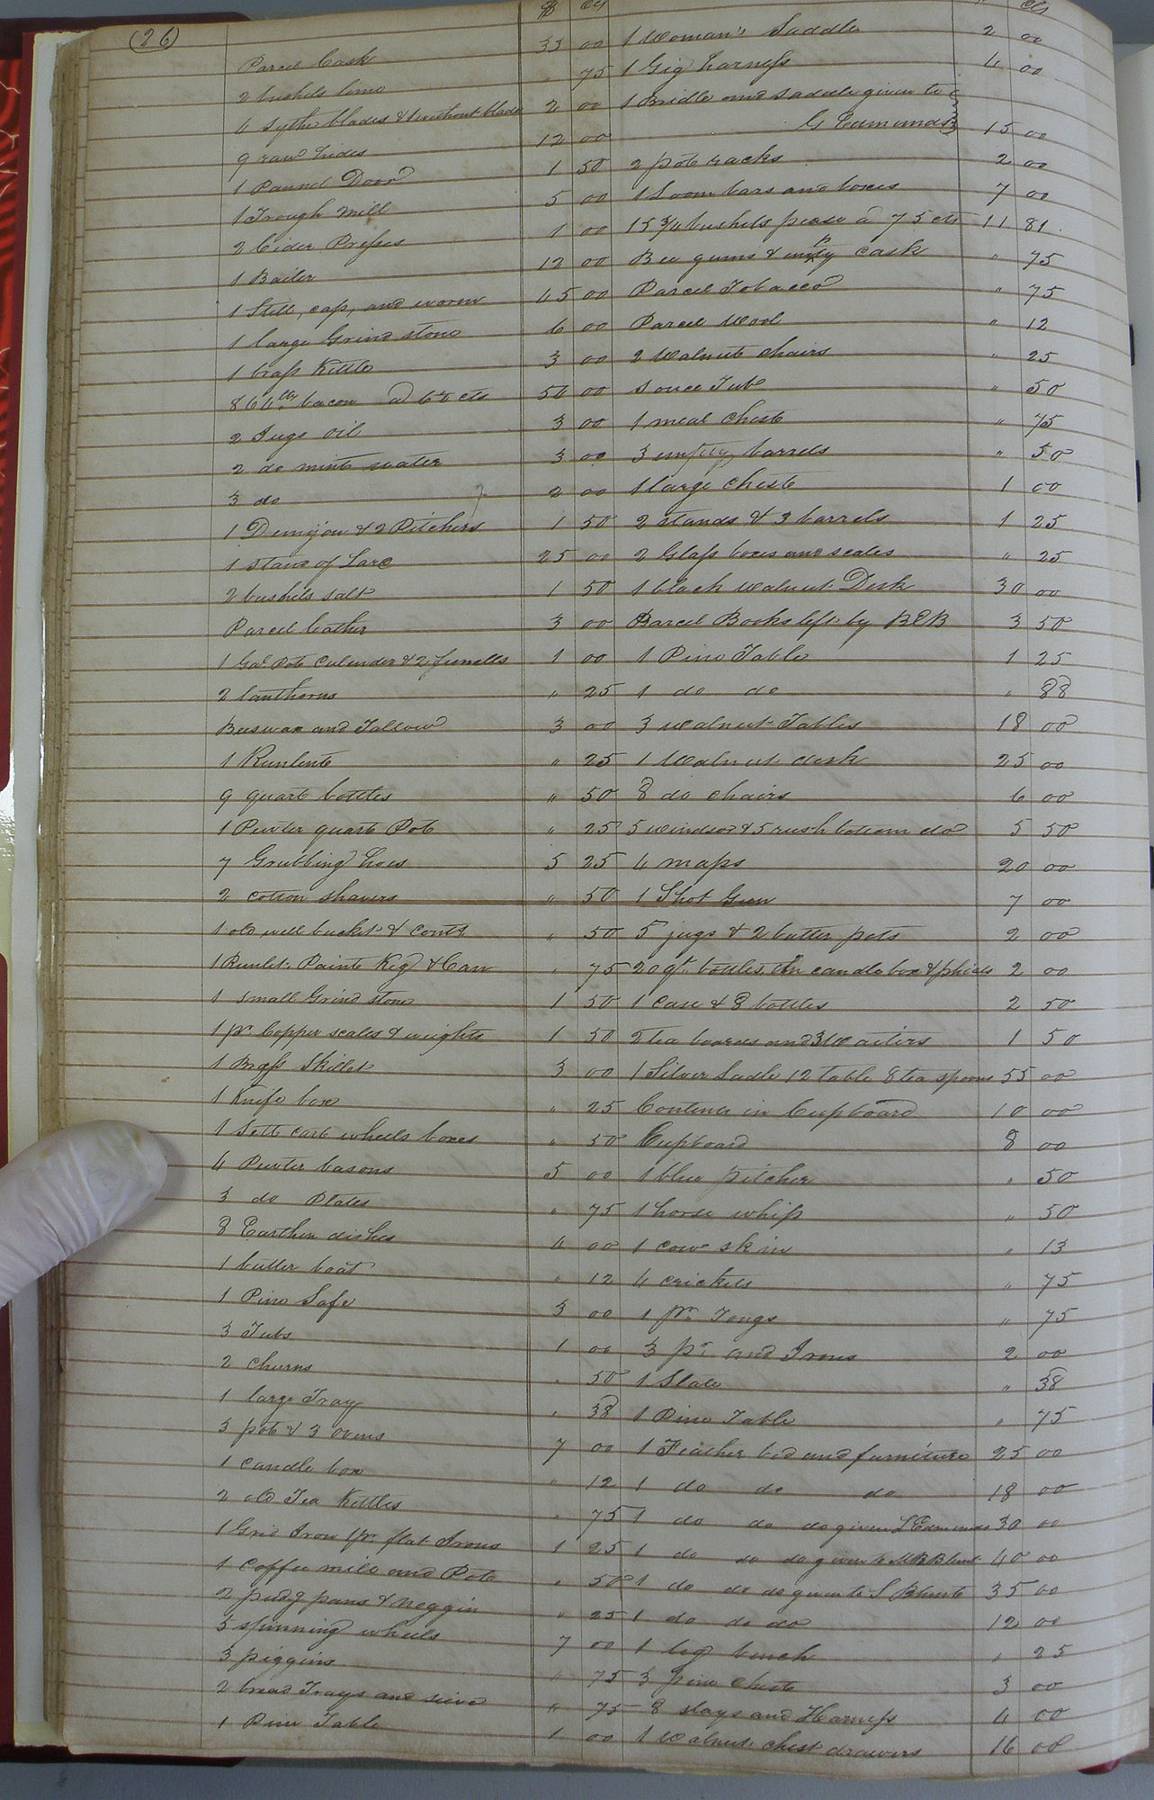 (26)
$ cts
Parcel Cask 33 00
2 bushels lime " 75
4 Sythe blades & 1 without blade 2 00
9 raw hides 12 00
1 Pannel Door 1 50
1 Trough Mill 5 00
2 Cider Presses 1 00
1 Boiler 12 00
1 Still, cap, and worm 45 00
1 large Grind stone 6 00
1 brass Kettle 3 00
864 lb bacon a cts 50 00
2 Jugs oil 3 00
2 do mint water 3 00
3 do 2 00
1 Demijon & 2 Pitchers 1 50
1 stand of Lard 25 00
2 bushels salt 1 50
Parcel leather 3 00
1 Gal Pot Culender & 2 funnells 1 00
2 lanthorns " 25
Beeswax and Tallow 3 00
1 Runlente " 25
9 quart bottles " 50
1 Pewter quart Pot " 25
7 Grubbing hoes 5 25
2 cotton shavers " 50
1 old well bucket & " 50
1 Runlet. Paint Keg & Can " 75
1 small Grind stone 1 50
1 pr. Copper scales & weights 1 50
1 Brass Skillet 3 00
1 Knife box " 25
1 Sett cart wheels boxes " 50
4 Pewter basons 5 00
3 do Plates " 75
8 Earthen dishes 4 00
1 butter boat " 12
1 Pine Safe 3 00
3 Tubs 1 00
2 churns " 50
1 large Tray " 38
3 pots & 3 ovens 7 00
1 candle box " 12
2 old Tea Kettles " 75
1 Grid Iron 1 pr. flat Irons 1 25
1 Coffee mill and Pot " 50
2 pudg pans & noggin " 25
5 spinning wheels 7 00
3 piggins " 75
2 bread Trays and sieve " 75
1 Pine Table 1 00
" cts
1 Woman's Saddle 2 00
1 Gig harness 4 00
1 Bridle and Saddle given to
G Edmunds 15 00
2 pot racks 2 00
1 Loom bars and boxes 7 00
15 3/4 bushels pease a 75 cts 11 81
Bee gums & empty cask " 75
Parcel Tobacco " 75
Parcel Wool " 12
2 Walnut chairs " 25
1 souce Tub " 50
1 meal chest " 75
3 empty barrels " 50
1 large chest 1 00
2 stands & 3 barrels 1 25
2 Glass boxes and scales " 25
1 black walnut Desk 30 00
Parcel Books left by BEB 3 50
1 Pine Table 1 25
1 do do " 88
3 walnut Tables 18 00
1 Walnut desk 25 00
8 do chairs 6 00
5 windsor & 5 rush bottom do 5 50
4 maps 20 00
1 Shot Gun 7 00
5 jugs & 2 butter pots 2 00
20 qt. bottles, candle box & phials 2 00
1 Case & 8 bottles 2 50
2 tea boards and 3 Waiters 1 50
1 Silver Ladle 12 table 8 tea spoons 55 00
Contents in Cupboard 10 00
Cupboard 8 00
1 blue pitcher " 50
1 horse whip " 50
1 cow skin " 13
4 crickets " 75
1 pr. Tongs " 75
3 pr. and Irons 2 00
1 Slate " 38
1 Pine Table " 75
1 Feather bed and furniture 25 00
1 do do do 18 00
1 do do do given L Edmunds 30 00
1 do do do given to M R Blunt 40 00
1 do do do given to S Blunt 35 00
1 do do do 12 00
1 leg bench " 25
3 pine chests 3 00
8 slays and Harness 4 00
1 Walnut chest drawers 16 00